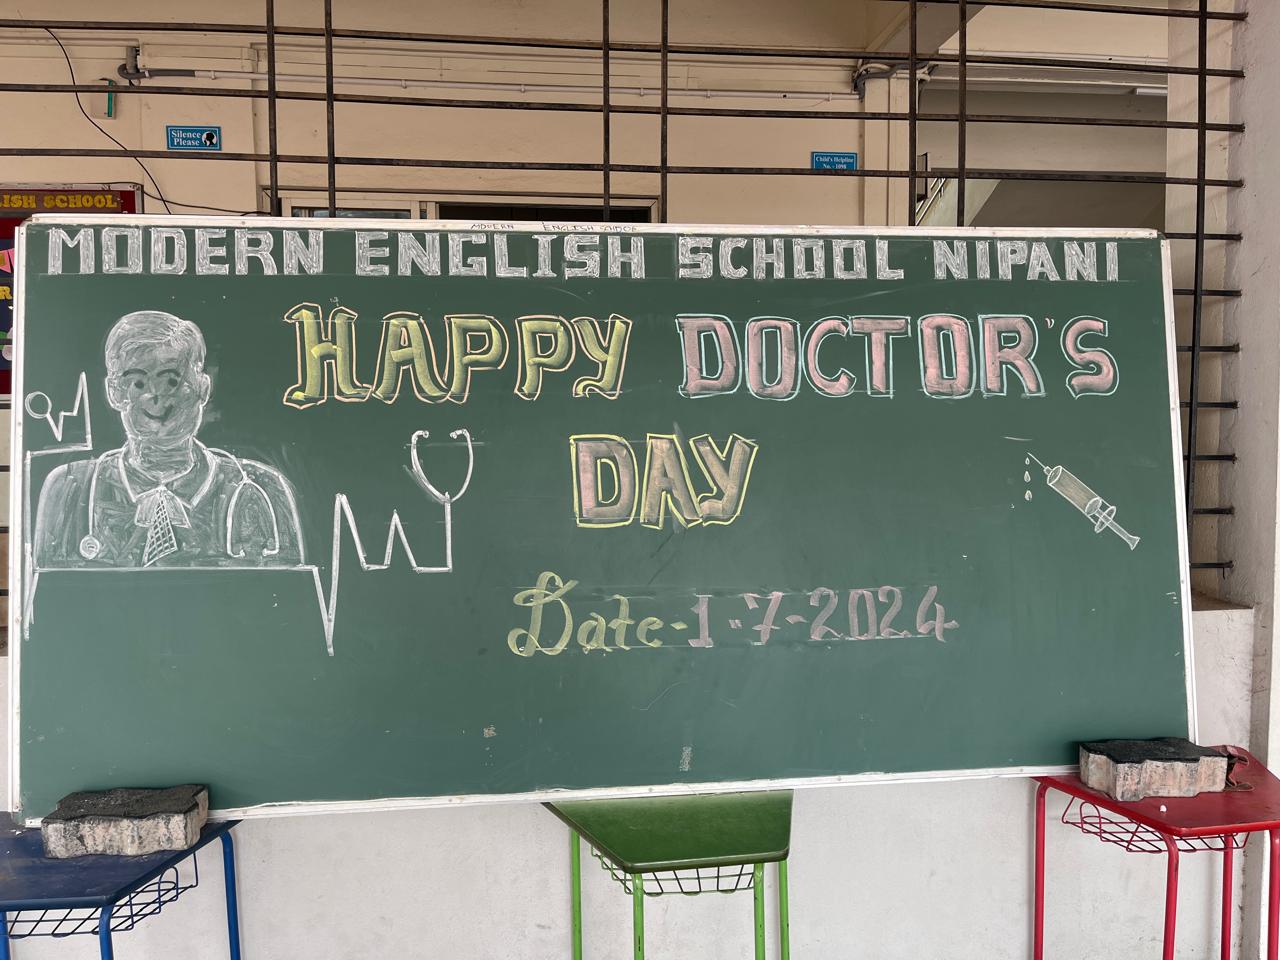 Silence
Please
Child's Helpline
No. - 1098
LISH SCHOOL
MODERN ENGLISH SCHOOL
MODERN ENGLISH SCHOOL NIPANI
HAPPY DOCTOR'S
DAY
Date-1-7-2024